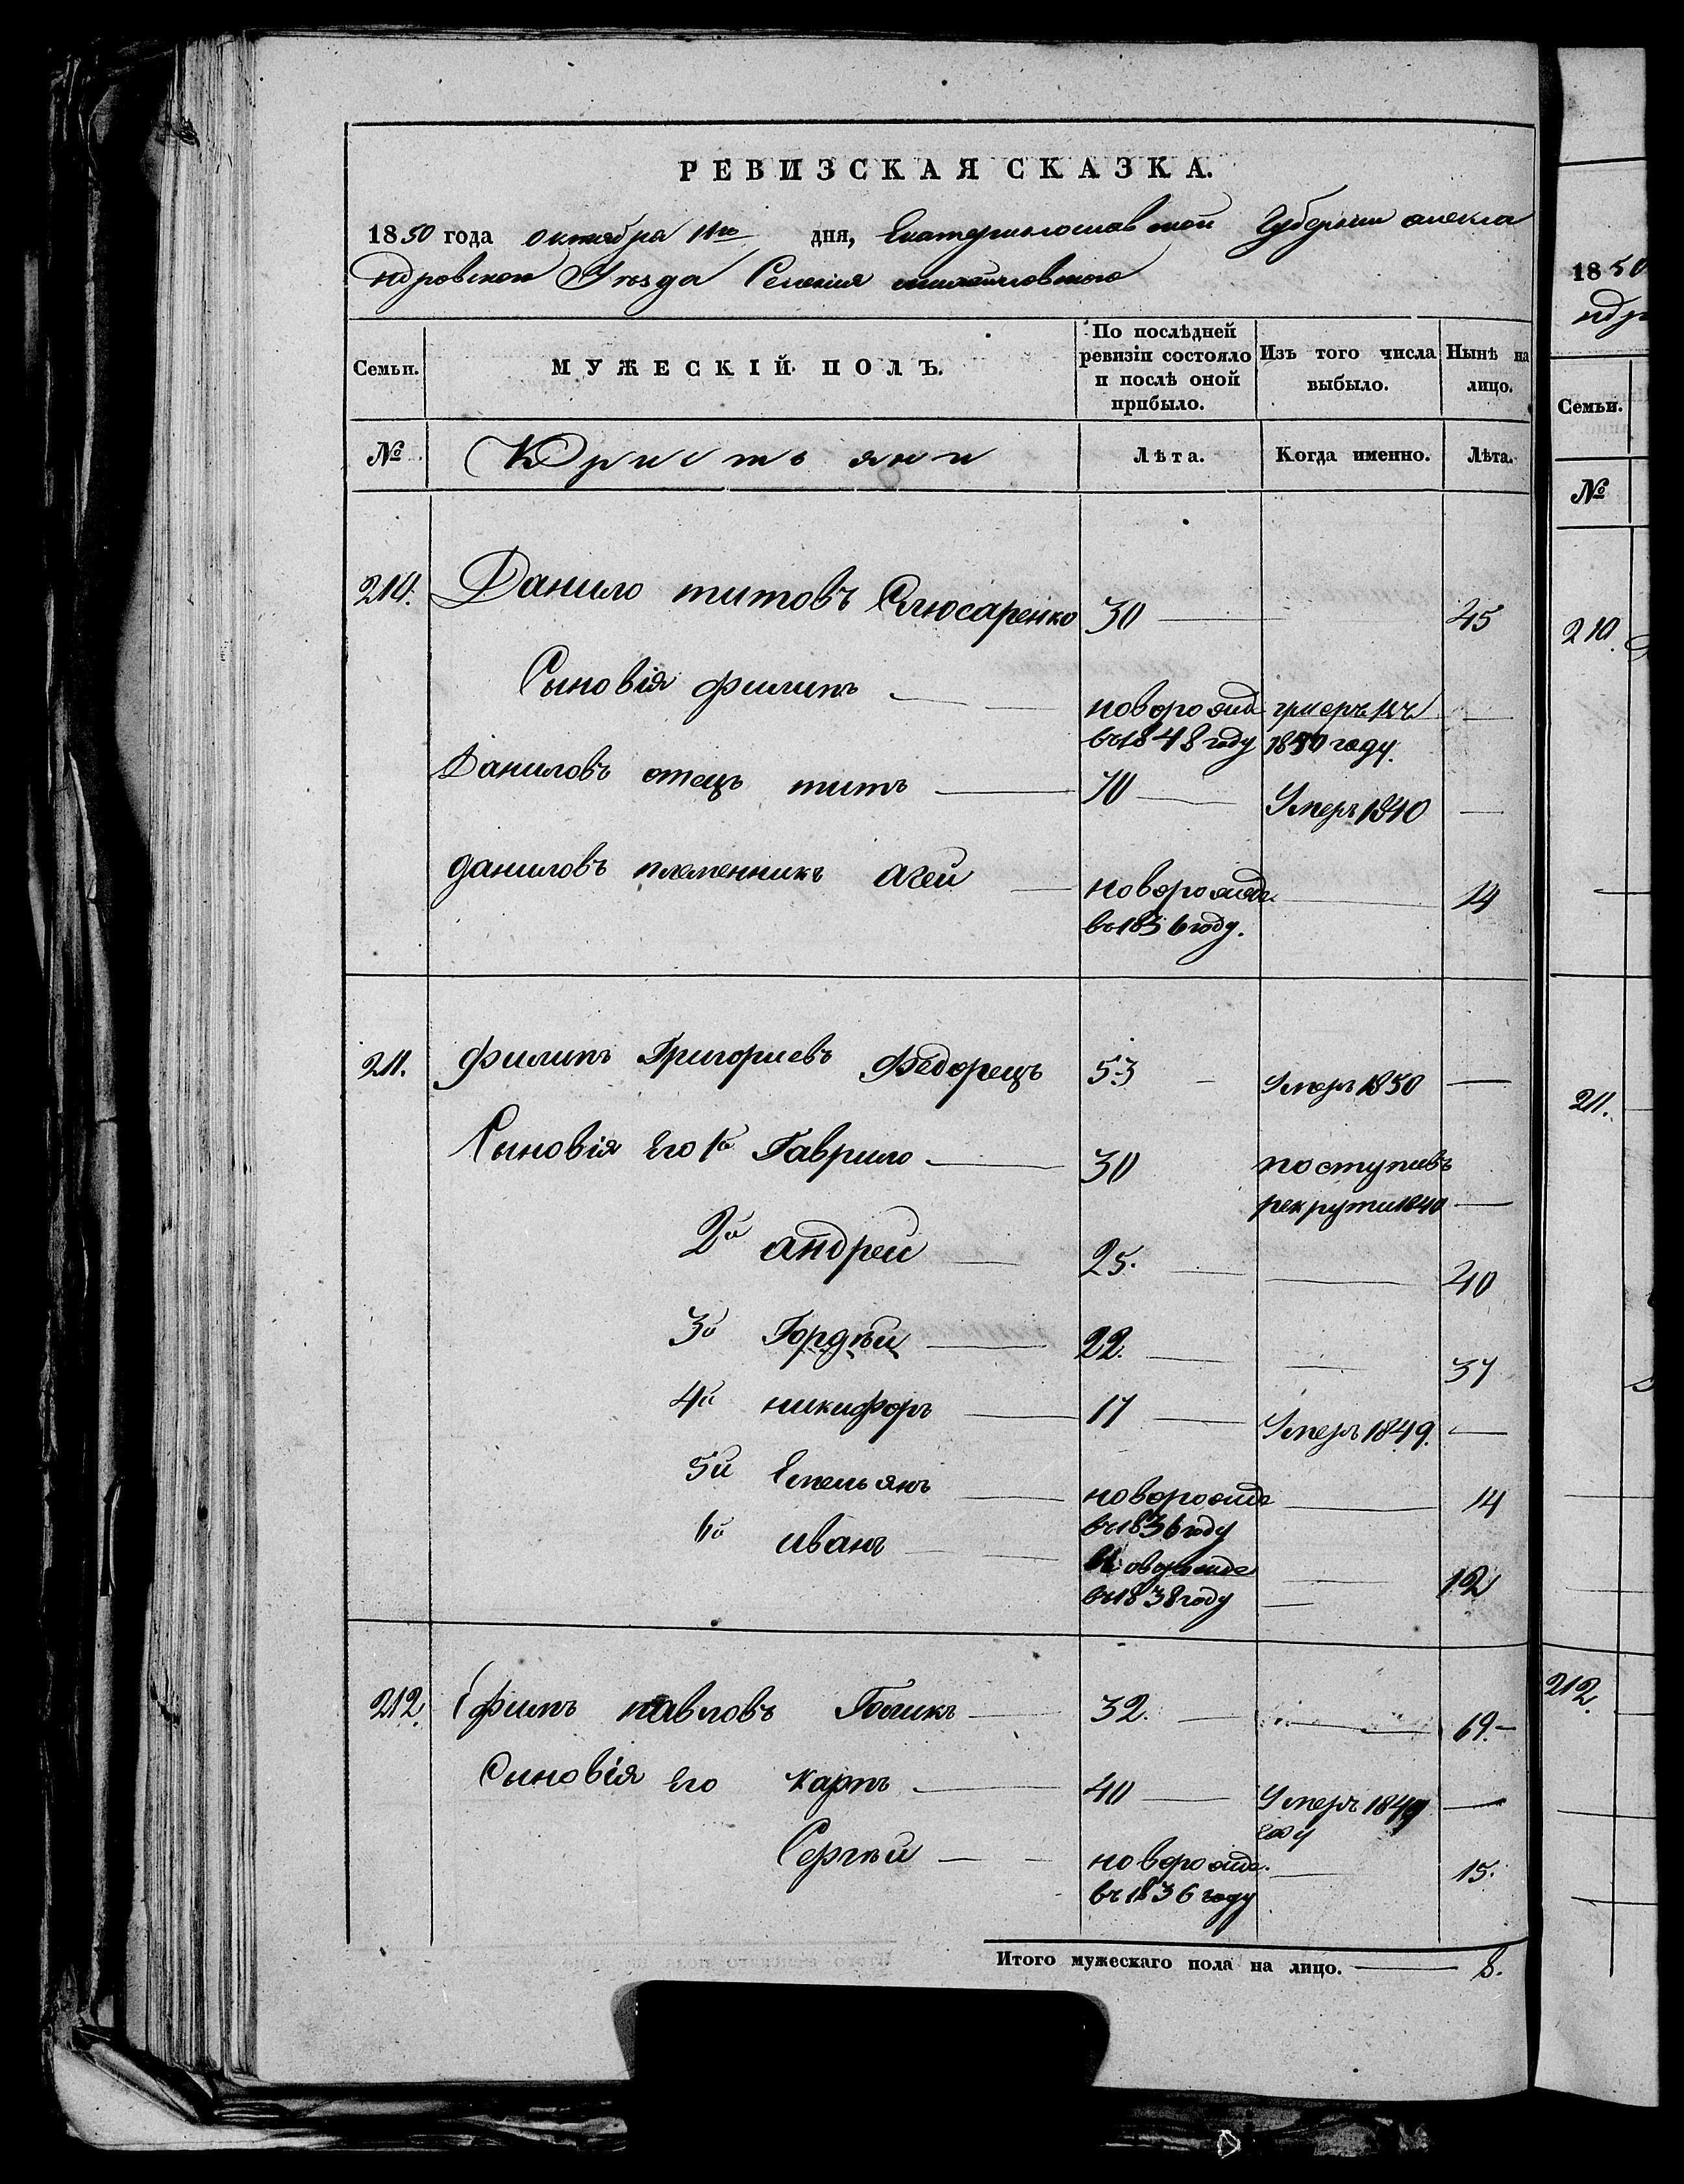 РЕВИЗСКАЯ СКАЗКА.
1850 года октября 11го дня, Екатеринославской Губернии алекса
ндровского Уезда Селения михайловского
Семьи.
МУЖЕСКІЙ ПОЛЪ.
По послѣдней ревизіи состояло и послѣ оной прибыло.
Изъ того числа выбыло.
Нынѣ на лицо.
№
Лѣта.
Когда именно.
Лѣта.
214. Данило титовъ Слюсаренко 30 45
Сыновія филипъ новорожд
въ 1848 году 1850 году.
Даниловъ отецъ титъ 70 Умеръ 1840
даниловъ племенникъ агей новорожде 14
въ 1836 году.
211. филипъ Григориевъ Федорецъ 53 Умеръ 1850
Сыновія Его 1й Гаврило 30 поступивъ
рекрути 1840
2й андрей 25. 40
3й Гордѣй 22. 37
4й никифоръ 17 Умеръ 1849.
5й Емельянъ новорожде 14
въ 1836 году
6й иванъ новорожде 12
въ 1838 году
212. Ефимъ павловъ 32. 69.
Сыновія Его карпъ 40 Умеръ 1849
году
Сергѣй новорожде. 15.
въ 1836 году
Итого мужескаго пола на лицо. 8.
1850
ндр
Семьи.
№
210.
211.
212.